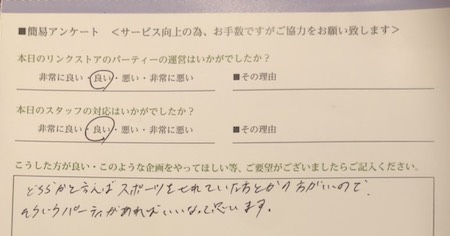 ■簡易アンケート ＜サービス向上の為、お手数ですがご協力をお願い致します＞
本日のリンクストアのパーティーの運営はいかがでしたか？
非常に良い・良い・悪い・非常に悪い ■その理由
本日のスタッフの対応はいかがでしたか？
非常に良い・良い・悪い・非常に悪い ■その理由
こうした方が良い・このような企画をやってほしい等、ご要望がございましたらご記入ください。
どちらかと言えばスポーツをされていた方とかの方がいいので、
そういうパーティがあればいいなって思います。